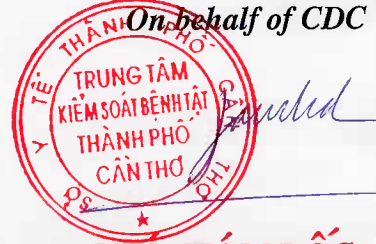 On behalf of CDC
SỞ Y TẾ THÀNH PHỐ CẦN THƠ
TRUNG TÂM
KIỂM SOÁT BỆNH TẬT
THÀNH PHỐ
CẦN THƠ